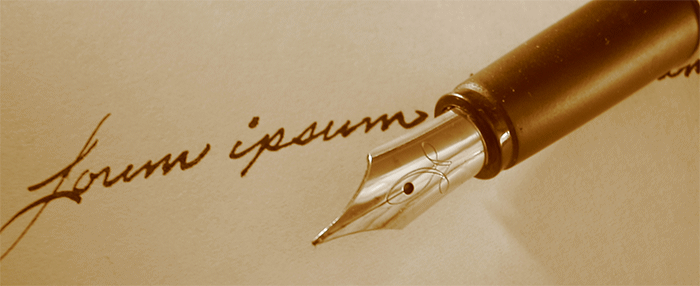 Lorem ipsum